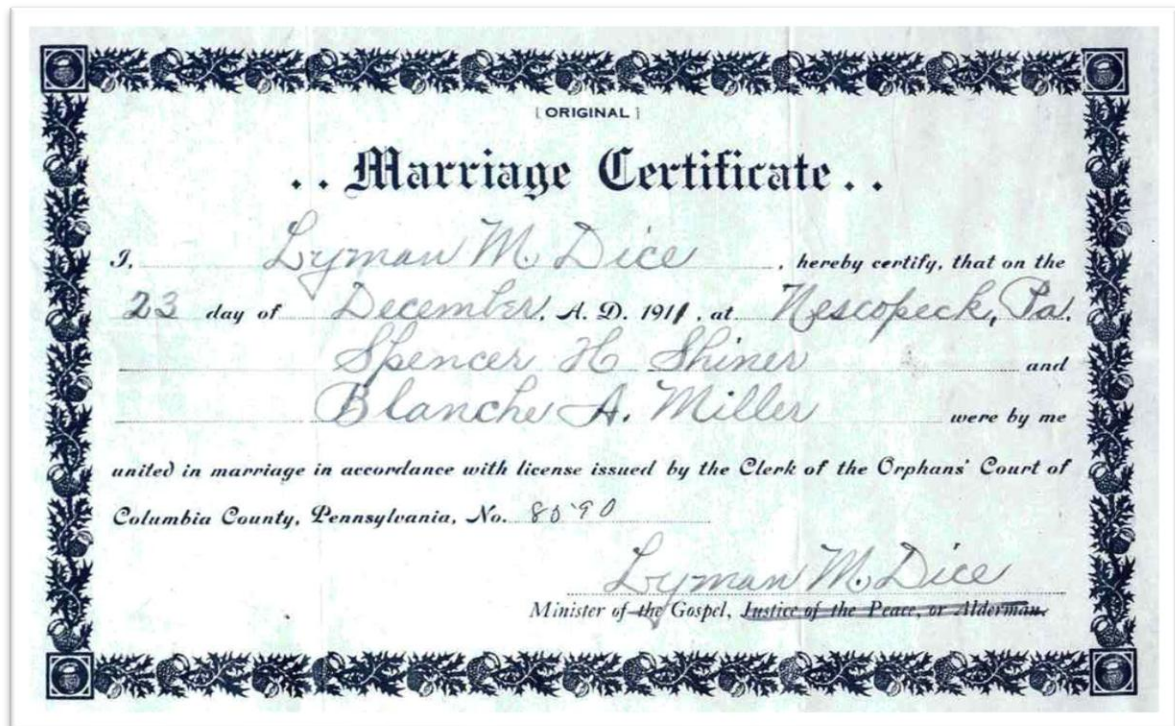 [ ORIGINAL ]
. . Marriage Certificate . .
I, Lyman M. Dice , hereby certify, that on the
23 day of December, A. D. 1911, at Nescopeck, Pa.
Spencer H Shiner and
Blanche A. Miller were by me
united in marriage in accordance with license issued by the Clerk of the Orphans' Court of
Columbia County, Pennsylvania, No. 8590
Lyman M. Dice
Minister of the Gospel, Justice of the Peace, or Alderman.